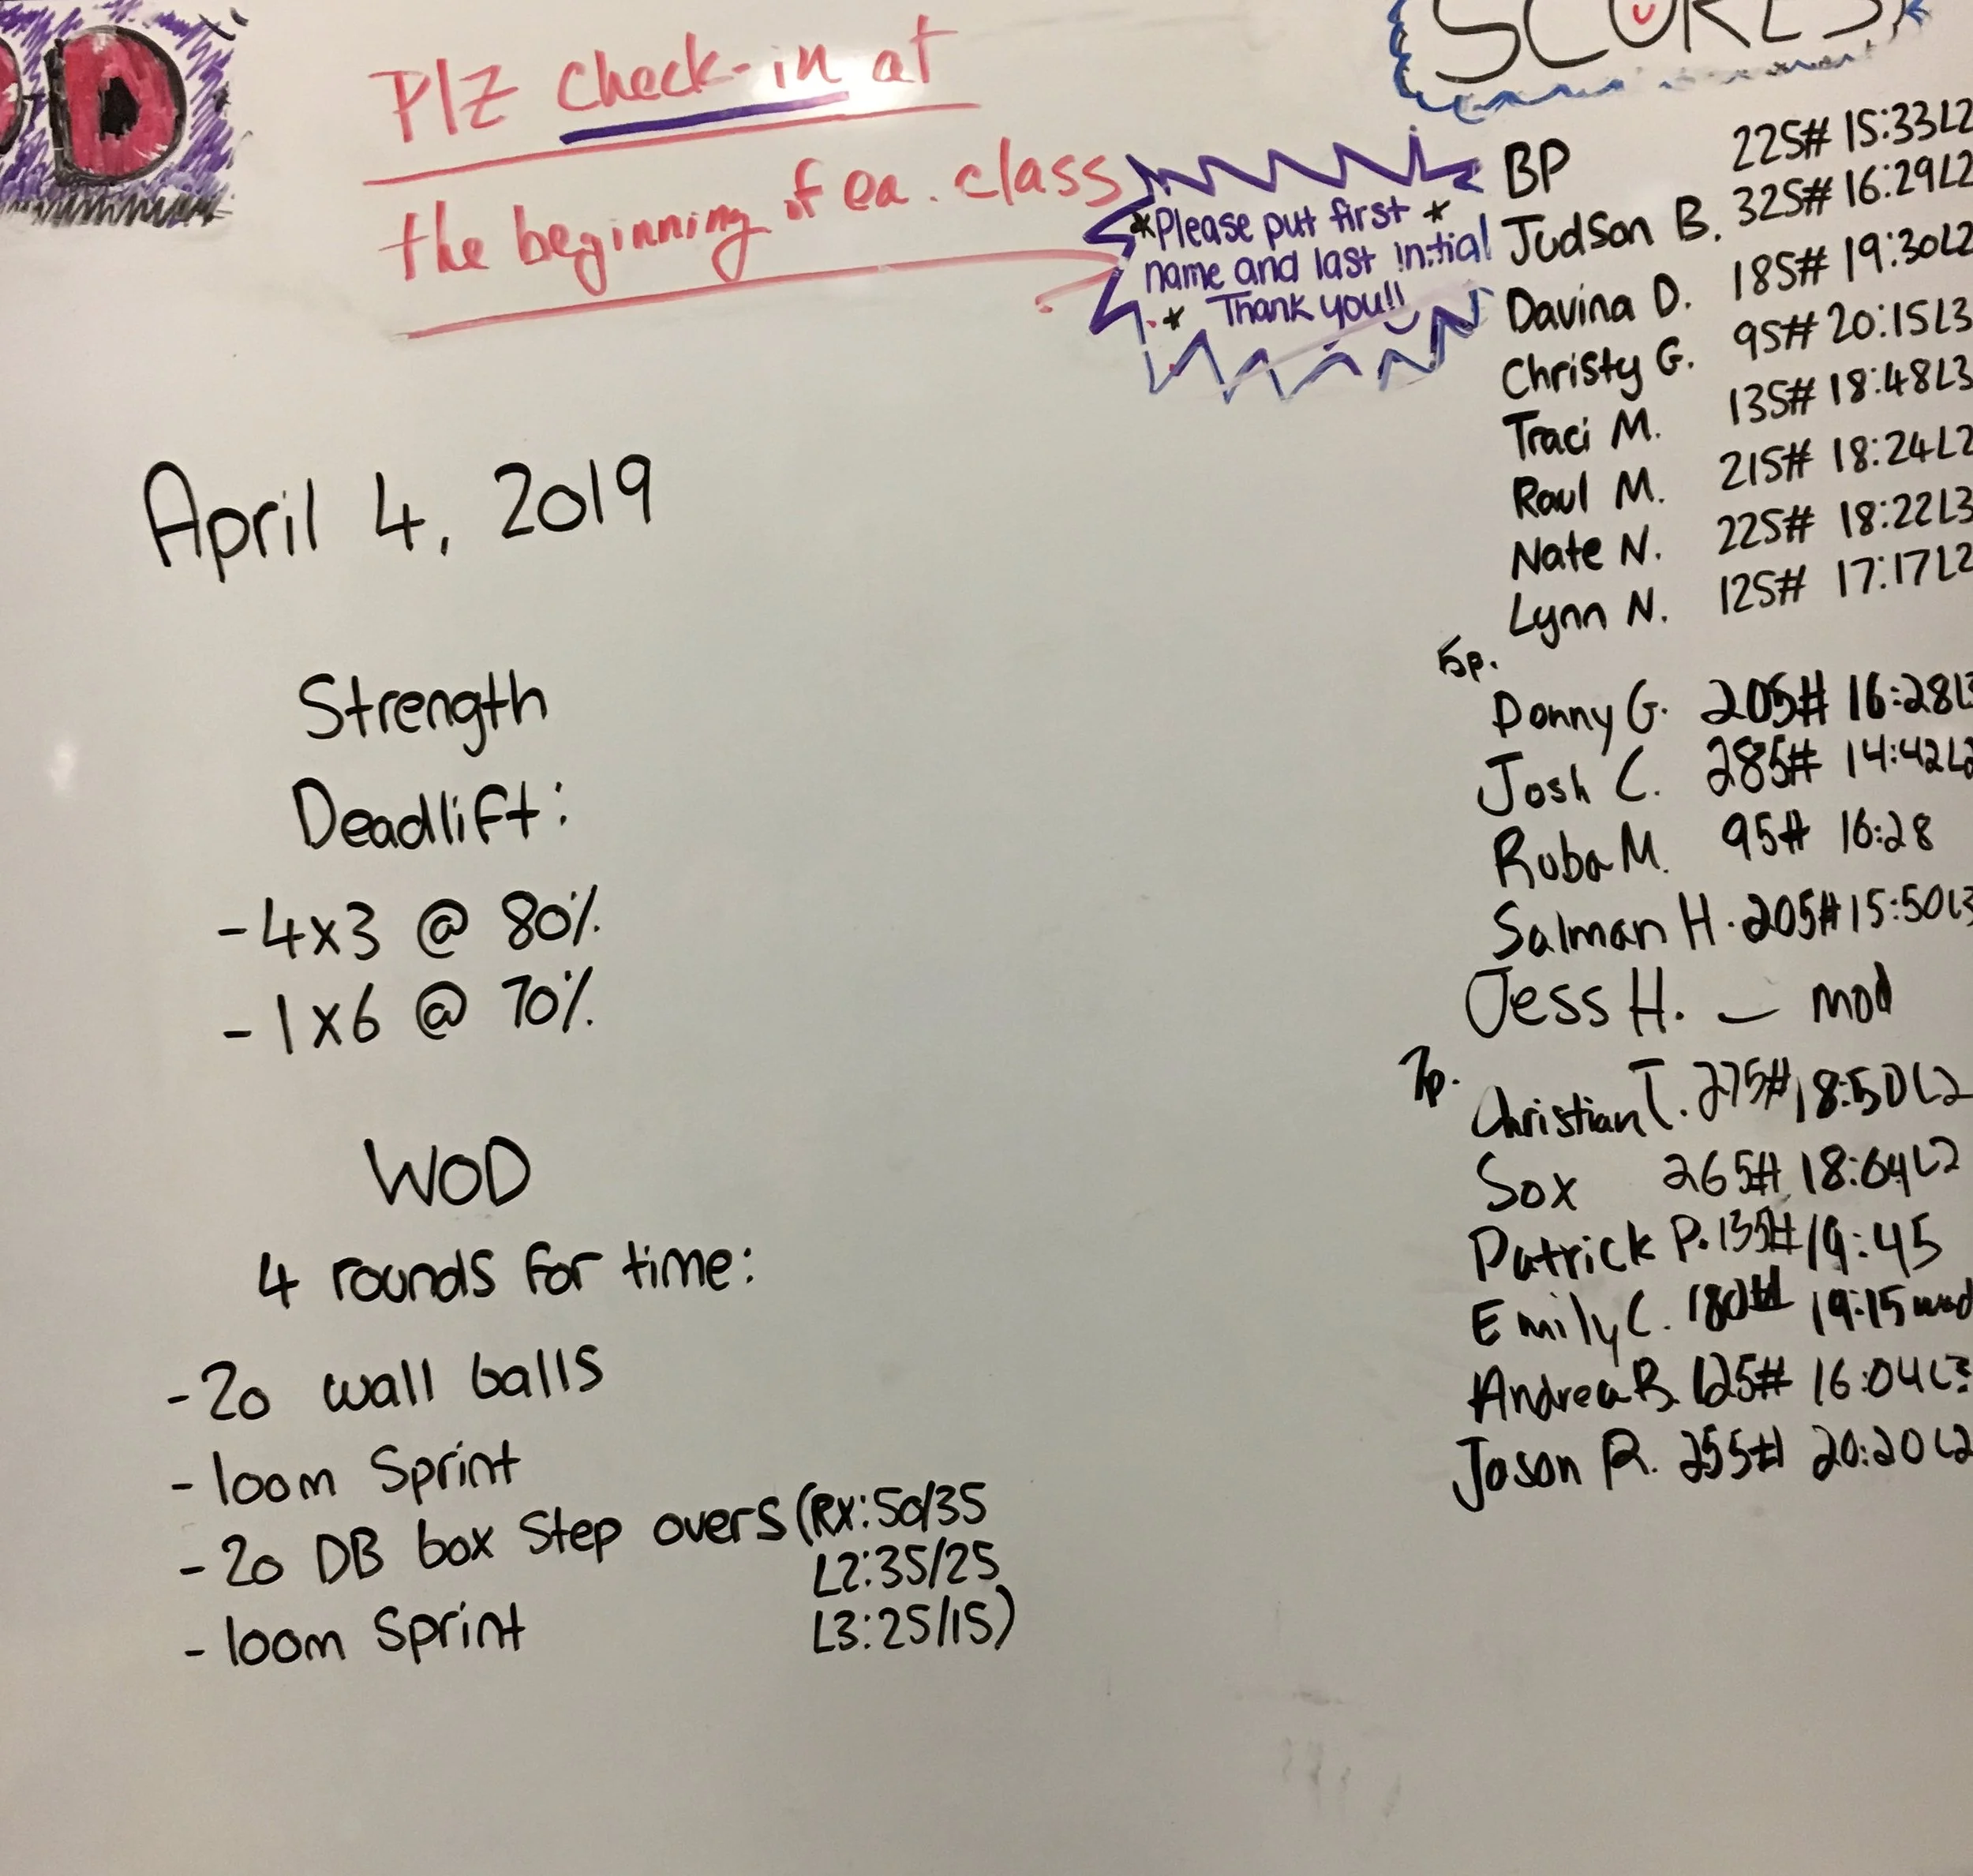 D
PlZ check-in at
the beginning of ea. class
*Please put first *
name and last initial
* Thank you!!
April 4, 2019
Strength
Deadlift:
-4x3 @ 80%
-1x6 @ 70%
WOD
4 rounds for time:
-20 wall balls
-100m Sprint
-20 DB box step overs (RX:50/35
L2:35/25
L3:25/15)
-100m Sprint
SCORES
BP 225# 15:33L2
Judson B. 325# 16:29L2
Davina D. 185# 19:30L2
Christy G. 95# 20:15L3
Traci M. 135# 18:48L3
Raul M. 215# 18:24L2
Nate N. 225# 18:22L3
Lynn N. 125# 17:17L2
5p.
Donny G. 205# 16:28L3
Josh C. 285# 14:42L2
Ruba M. 95# 16:28
Salman H. 205# 15:50L3
Jess H. — mod
7p.
Christian T. 275# 18:50L2
Sox 265# 18:04L2
Patrick P. 135# 19:45
Emily C. 180# 19:15 mod
Andrea B. 125# 16:04L3
Jason R. 255# 20:20L2